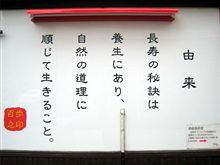 由来
長寿の秘訣は
養生にあり、
自然の道理に
順じて生きること。
百歩
之印